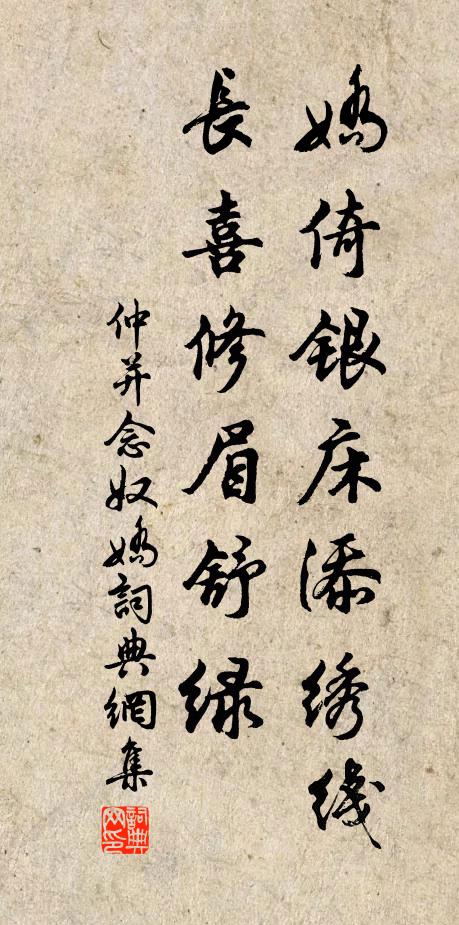 嬌倚銀床添綉綫
長喜修眉舒緑
仲并念奴嬌詞典網集
詞典网印